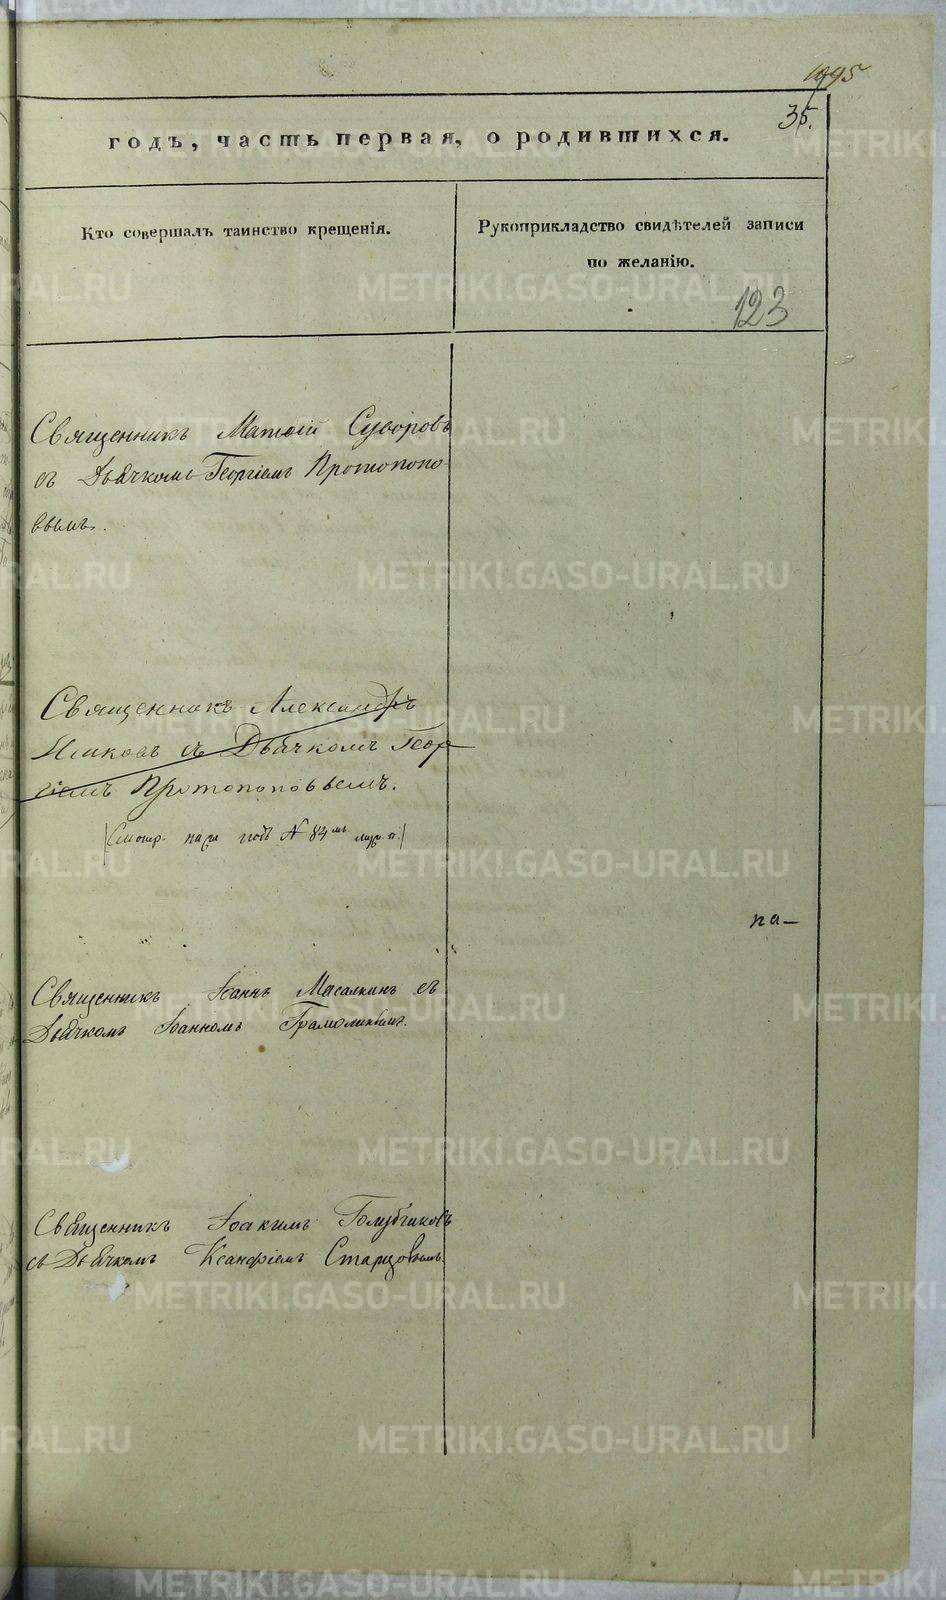 1095
35.
годъ, часть первая, о родившихся.
Кто совершалъ таинство крещенія.
Рукоприкладство свидѣтелей записи
по желанію.
123
Священникъ Матѳій Суворовъ
съ Дьячкомъ Георгіемъ Протопопо-
вымъ.
Священникъ Александръ
съ Дьячкомъ Геор-
гіемъ Протопоповвемъ.
подъ № 84
на—
Священникъ Іоаннъ Масалкинъ съ
Дьячкомъ Іоанномъ
Священникъ Іоакимъ Голубчиковъ
съ Дьячкомъ Ксанфіемъ Старцовымъ.
METRIKI.GASO-URAL.RU